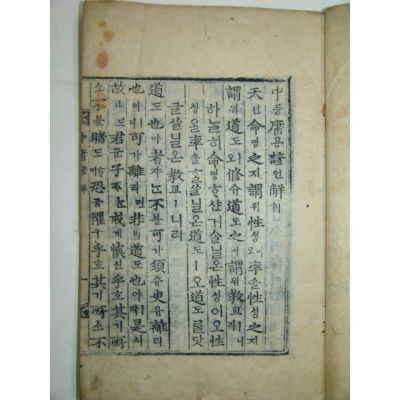 中듕庸용諺언解ᄒᆡ
天텬命명之지謂위性셩이오率솔性셩之지
謂위道도ㅣ오修슈道도之지謂위教교ㅣ니라
하ᄂᆞᆯ히命명ᄒᆞ샨거슬닐온性셩이오性
셩을率솔ᄒᆞᆯᄉᆞᆯ닐온道도ㅣ오道도ᄅᆞᆯ닷
글ᄉᆞᆯ닐온教교ㅣ니라
道도也야者쟈ᄂᆞᆫ不블可가須슈臾유離리
也야ㅣ니可가離리면非비道도也야ㅣ라是시
故고로君군子ᄌᆞᄂᆞᆫ戒계慎신乎호其기所
소不블睹도ᄒᆞ며恐공懼구乎호其기所소不